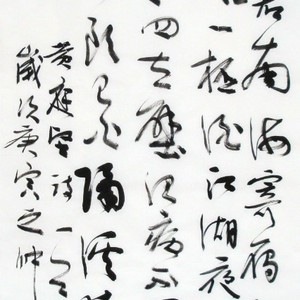 君南海寄雁
一杯酒江湖夜
四立壁治病不
頭已白隔溪
黄庭坚诗一首
歲次庚寅之仲